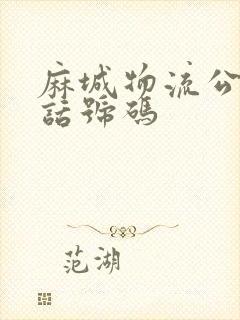 麻城物流公
話號碼
范湖